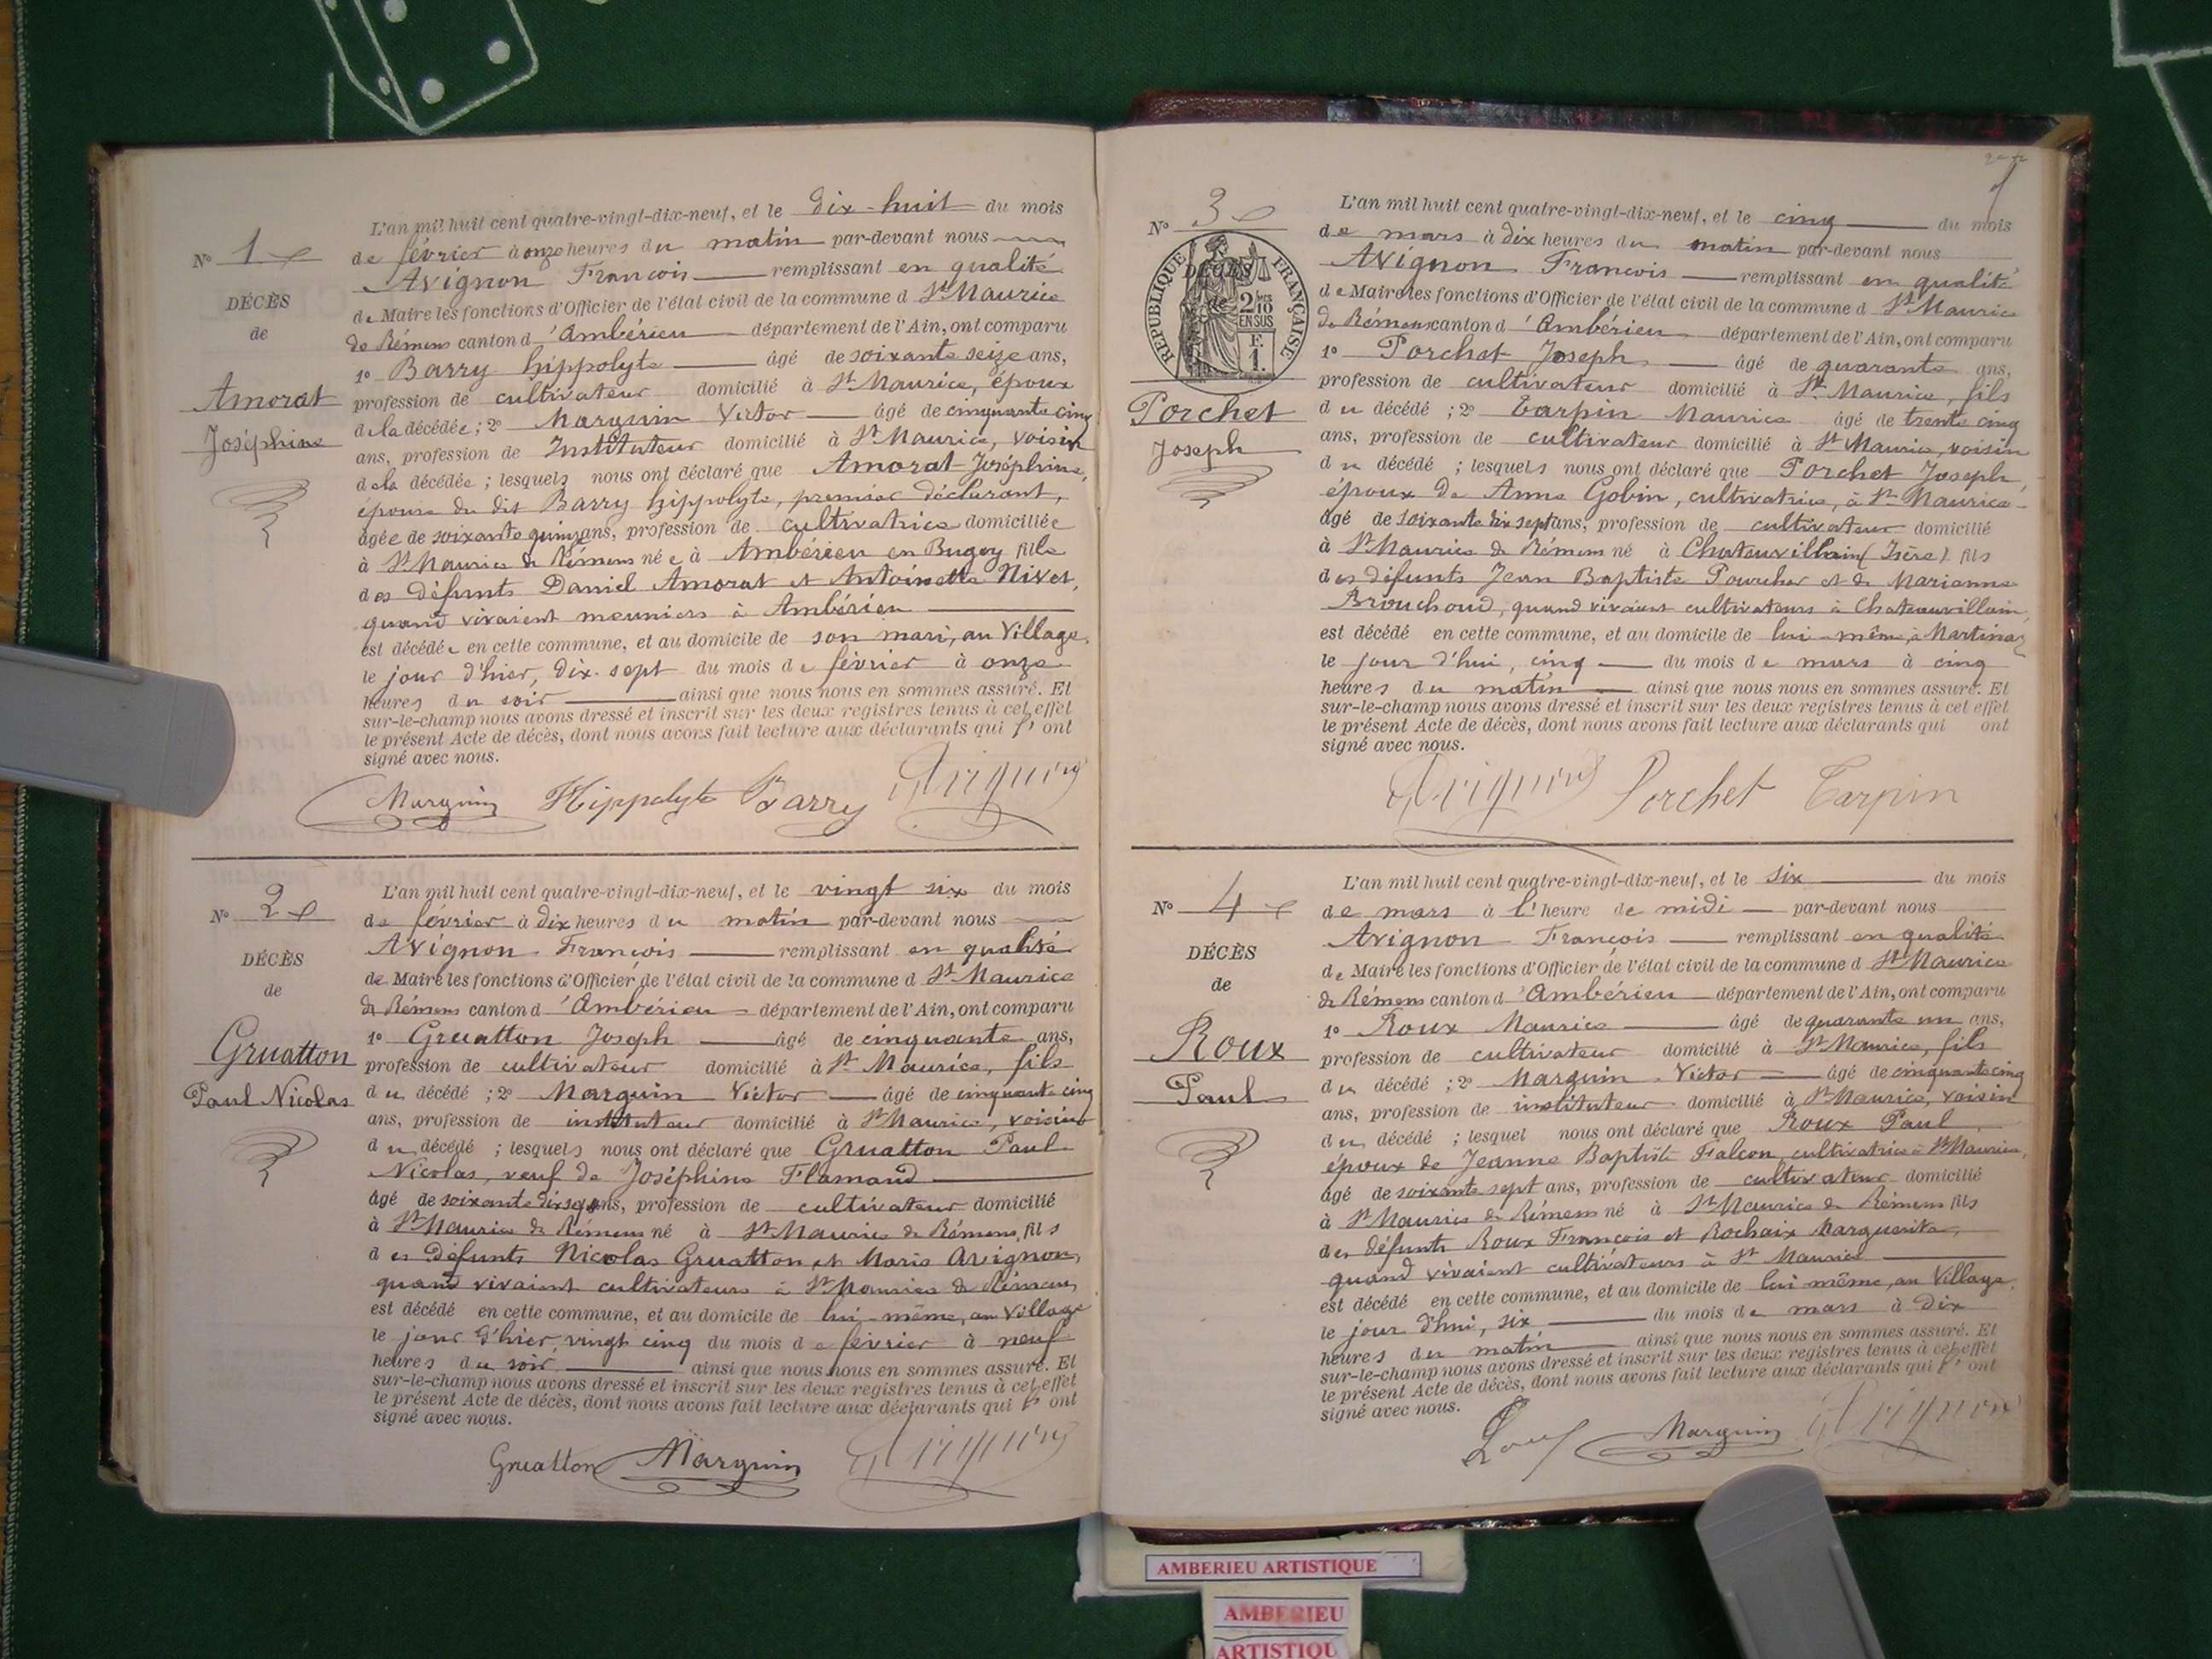 L'an mil huit cent quatre-vingt-dix-neuf, et le dix-huit du mois
N° 1 de février à onze heures du matin par-devant nous
Avignon François remplissant en qualité
DÉCÈS de Maire les fonctions d'Officier de l'état civil de la commune d St Maurice
de de Rémens canton d'Ambérieu département de l'Ain, ont comparu
1° Barry hippolyte âgé de soixante seize ans,
Amorat profession de cultivateur domicilié à St Maurice, époux
de la décédée ; 2° Marguin Victor âgé de cinquante cinq
Joséphine ans, profession de Instituteur domicilié à St Maurice, voisin
de la décédée ; lesquels nous ont déclaré que Amorat Joséphine,
épouse du dit Barry hippolyte, premier déclarant,
âgée de soixante quinze ans, profession de cultivatrice domiciliée
à St Maurice de Rémens née à Ambérieu en Bugey fille
des défunts Daniel Amorat et Antoinette Nivet,
quand vivaient meuniers à Ambérieu
est décédée en cette commune, et au domicile de son mari, au Village,
le jour d'hier, dix-sept du mois de février à onze
heures du soir ainsi que nous nous en sommes assuré. Et
sur-le-champ nous avons dressé et inscrit sur les deux registres tenus à cet effet
le présent Acte de décès, dont nous avons fait lecture aux déclarants qui l' ont
signé avec nous.
Marguin Hippolyte Barry Avignon
L'an mil huit cent quatre-vingt-dix-neuf, et le vingt six du mois
N° 2 de février à dix heures du matin par-devant nous
Avignon François remplissant en qualité
DÉCÈS de Maire les fonctions d'Officier de l'état civil de la commune d St Maurice
de de Rémens canton d'Ambérieu département de l'Ain, ont comparu
1° Gruatton Joseph âgé de cinquante ans,
Gruatton profession de cultivateur domicilié à St Maurice, fils
Paul Nicolas du décédé ; 2° Marguin Victor âgé de cinquante cinq
ans, profession de instituteur domicilié à St Maurice, voisin
du décédé ; lesquels nous ont déclaré que Gruatton Paul
Nicolas, veuf de Joséphine Flamand
âgé de soixante dix sept ans, profession de cultivateur domicilié
à St Maurice de Rémens né à St Maurice de Rémens, fils
des défunts Nicolas Gruatton et Marie Avignon,
quand vivaient cultivateurs à St Maurice de Rémens
est décédé en cette commune, et au domicile de lui-même, au Village
le jour d'hier, vingt cinq du mois de février à neuf
heures du soir ainsi que nous nous en sommes assuré. Et
sur-le-champ nous avons dressé et inscrit sur les deux registres tenus à cet effet
le présent Acte de décès, dont nous avons fait lecture aux déclarants qui l' ont
signé avec nous.
Gruatton Marguin Avignon
L'an mil huit cent quatre-vingt-dix-neuf, et le cinq du mois
N° 3 de mars à dix heures du matin par-devant nous
Avignon François remplissant en qualité
RÉPUBLIQUE FRANÇAISE
2/10 EN SUS
F. 1.
DÉCÈS de Maire les fonctions d'Officier de l'état civil de la commune d St Maurice
de de Rémens canton d'Ambérieu département de l'Ain, ont comparu
1° Porchet Joseph âgé de quarante ans,
profession de cultivateur domicilié à St Maurice, fils
Porchet du décédé ; 2° Tarpin Maurice âgé de trente cinq
Joseph ans, profession de cultivateur domicilié à St Maurice, voisin
du décédé ; lesquels nous ont déclaré que Porchet Joseph,
époux de Anne Gobin, cultivatrice, à St Maurice
âgé de soixante dix sept ans, profession de cultivateur domicilié
à St Maurice de Rémens né à Chateauvillain (Isère) fils
des défunts Jean Baptiste Pourcher et de Marianne
Brouchoud, quand vivaient cultivateurs à Chateauvillain,
est décédé en cette commune, et au domicile de lui-même, à Martinaz
le jour d'hui, cinq du mois de mars à cinq
heures du matin ainsi que nous nous en sommes assuré. Et
sur-le-champ nous avons dressé et inscrit sur les deux registres tenus à cet effet
le présent Acte de décès, dont nous avons fait lecture aux déclarants qui ont
signé avec nous.
Avignon Porchet Tarpin
L'an mil huit cent quatre-vingt-dix-neuf, et le six du mois
N° 4 de mars à l'heure de midi par-devant nous
Avignon François remplissant en qualité
DÉCÈS de Maire les fonctions d'Officier de l'état civil de la commune d St Maurice
de de Rémens canton d'Ambérieu département de l'Ain, ont comparu
1° Roux Maurice âgé de quarante un ans,
Roux profession de cultivateur domicilié à St Maurice, fils
Paul du décédé ; 2° Marguin Victor âgé de cinquante cinq
ans, profession de instituteur domicilié à St Maurice, voisin
du décédé ; lesquel nous ont déclaré que Roux Paul,
époux de Jeanne Baptiste Falcon, cultivatrice à St Maurice,
âgé de soixante sept ans, profession de cultivateur domicilié
à St Maurice de Rémens né à St Maurice de Rémens fils
des défunts Roux François et Rochaix Marguerite,
quand vivaient cultivateurs à St Maurice
est décédé en cette commune, et au domicile de lui même, au Village,
le jour d'hui, six du mois de mars à dix
heures du matin ainsi que nous nous en sommes assuré. Et
sur-le-champ nous avons dressé et inscrit sur les deux registres tenus à cet effet
le présent Acte de décès, dont nous avons fait lecture aux déclarants qui l' ont
signé avec nous.
Roux Marguin Avignon
AMBERIEU ARTISTIQUE
AMBERIEU
ARTISTIQU